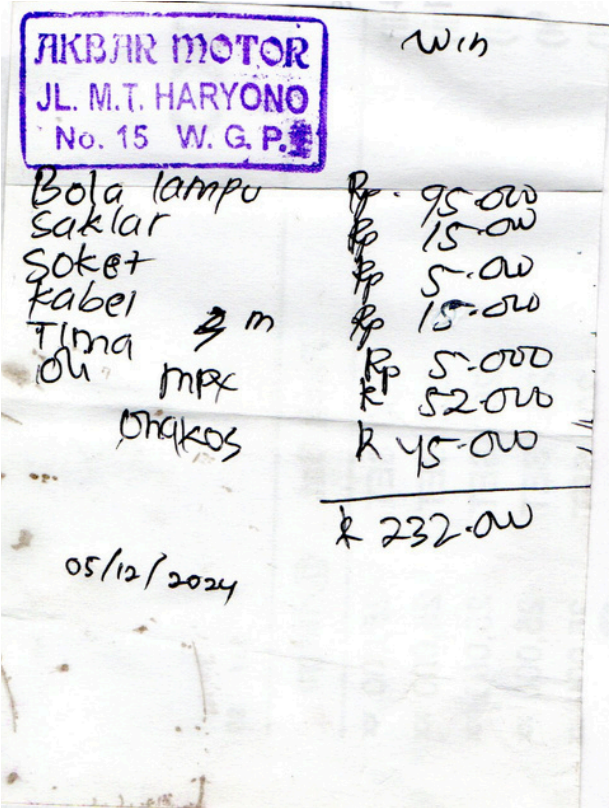 AKBAR MOTOR
JL. M.T. HARYONO
No. 15 W. G. P.
Win
Bola lampu Rp. 95.000
Saklar Rp 15.000
Soket Rp 5.000
Kabel 3 m Rp 15.000
Tima Rp 5.000
Oli mpx R 52.000
Ongkos R 45.000
R 232.000
05/12/2024